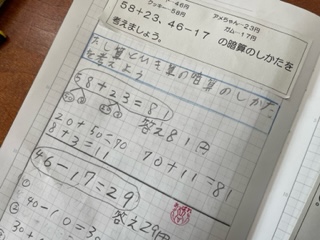 クッキー58円 ガム―17円
アメちゃん―23円
58+23、46−17 の暗算のしかたを
考えましょう。
たし算とひき算の暗算のしかた
を考えよう
58+23=81
答え81円
20+50=70 70+11=81
8+3=11
46−17=29
①
答え29円